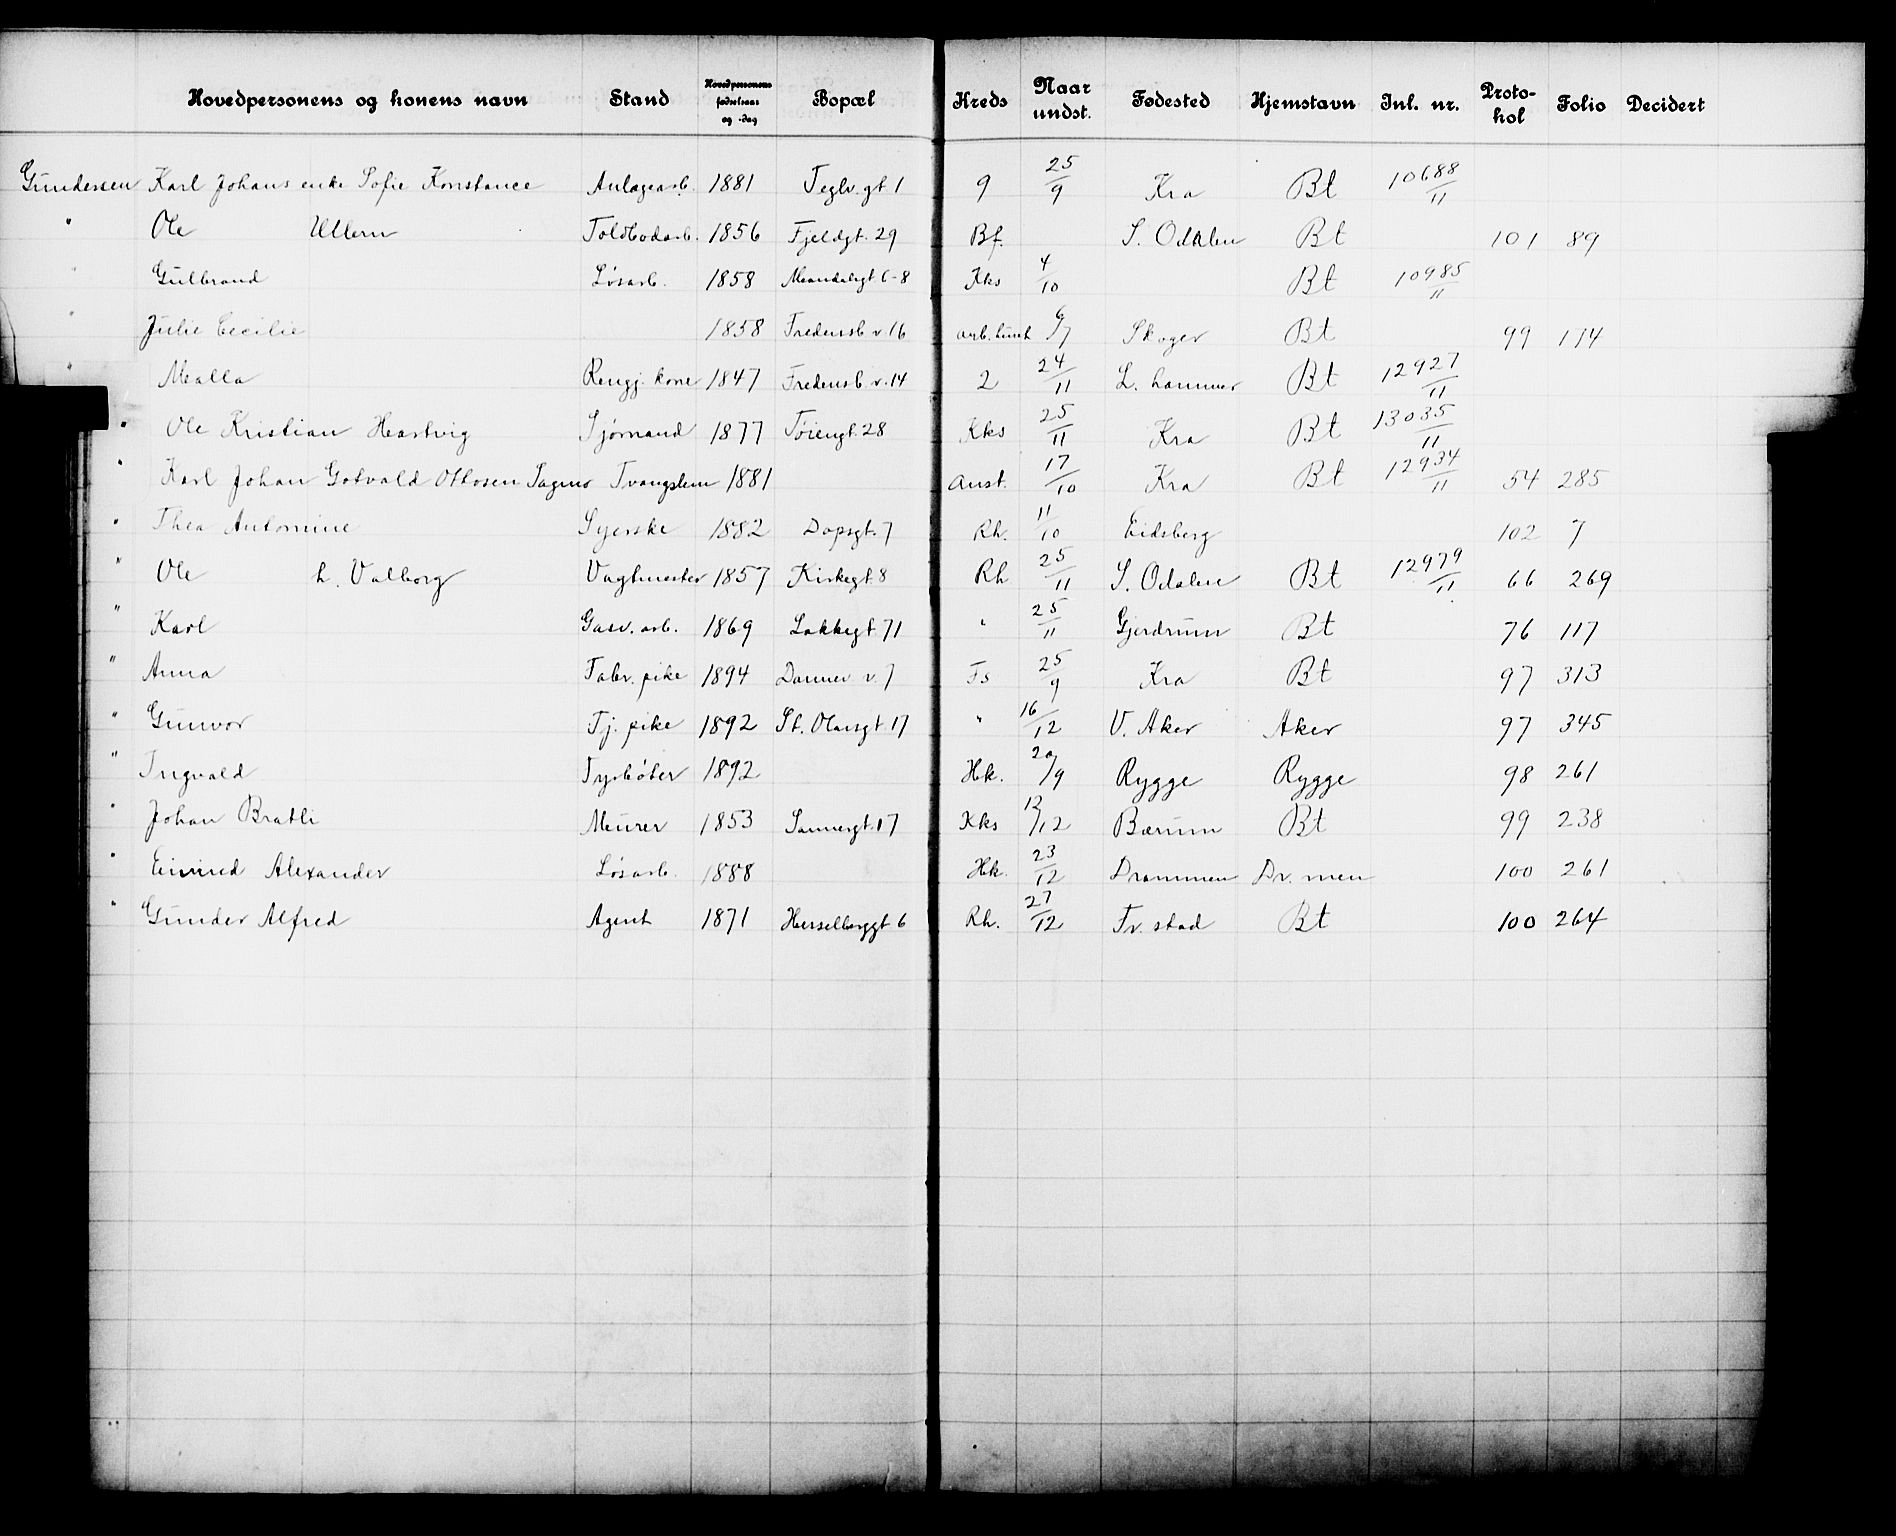 Hovedpersonens og konens navn Stand Hovedpersonens fødselsaar og -dag Bopæl Kreds Naar undst. Fødested Hjemstavn Inl. nr. Protokol Folio Decidert
Gundersen Karl Johans enke Sofie Konstance Anlægsarb. 1881 Teglv.gt 1 9 25/9 Kra Bt 10688/11
" Ole Ullern Toldbodarb. 1856 Fjeldgt. 29 Bf. S. Odalen Bt 101 89
" Gulbrand Løsarb. 1858 Mandalsgt 6-8 Kks 4/10 Bt 10985/11
" Julie Cecilie 1858 Fredenssb v. 16 arb. 6/7 Skoger Bt 99 174
" Malla Rengj. kone 1847 Fredensb. v. 14 2 24/11 L. hammer Bt 12927/11
" Ole Kristian Hartvig Sjømand 1877 Tøiengt. 28 Kks 25/11 Kra Bt 13035/11
" Karl Johan Gotvald Ottosen Sagmo Tvangslem 1881 Anst. 17/10 Kra Bt 12934/11 54 285
" Thea Antomine Syerske 1882 Dopsgt. 7 Rh. 11/10 Eidsberg 102 7
" Ole h. Valborg Vagtmester 1857 Kirkegt. 8 Rh 25/11 S. Odalen Bt 12979/11 66 269
" Karl Gasv. arb. 1869 Lakkegt. 71 " 25/11 Gjerdrum Bt 76 117
" Anna Fabr. pike 1894 Danmer v. 7 Fs 25/9 Kra Bt 97 313
" Gunvor Tj. pike 1892 St. Olavsgt. 17 " 16/12 V. Aker Aker 97 345
" Ingvald Fyrbøter 1892 Hk. 20/9 Rygge Rygge 98 261
" Johan Bratli Murer 1853 Sannergt. 17 Kks 12/12 Bærum Bt 99 238
" Eivind Alexander Løsarb. 1888 Hk. 23/12 Drammen Dr. men 100 261
" Gunder Alfred Agent 1871 Herselbsggt 6 Rh. 27/12 Fr. stad Bt 100 264